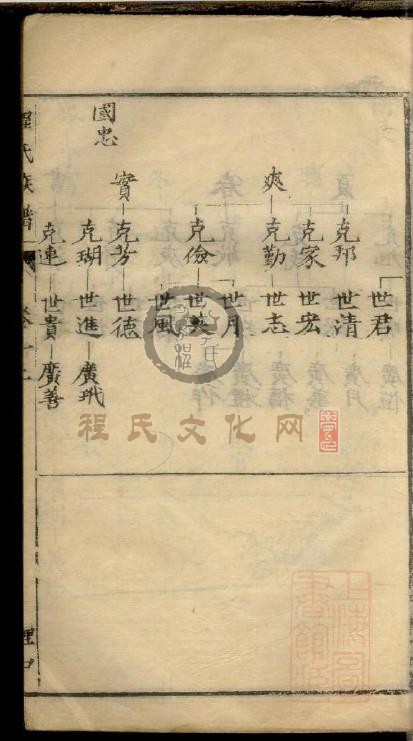 世君
克邦 世清
克家 世宏
爽 克勤 世志
世月
克儉 世英
世風
實 克芳 世德
國忠
克瑚 世進 廣玳
克連 世貴 廣善
程氏族譜 卷十二
程氏文化网
上海圖書館藏